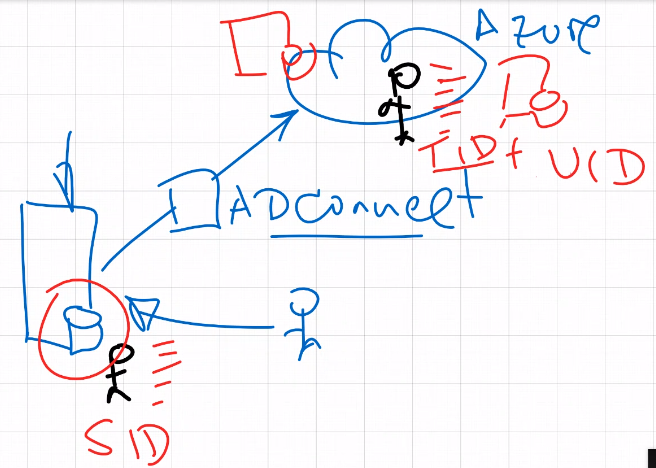 Azure
TID + UID
ADConnect
SID